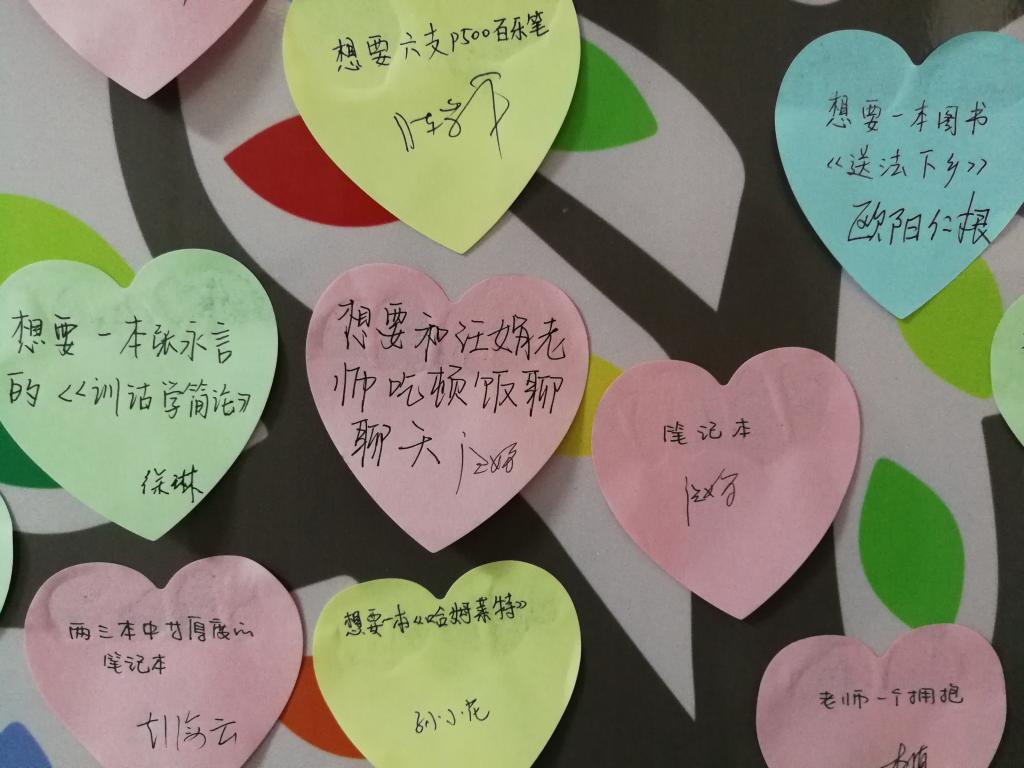 想要六支p500百乐笔
想要一本图书
《送法下乡》
欧阳仁根
想要一本张永言
的《训诂学简论》
徐琳
想要和汪娟老
师吃顿饭聊
聊天
笔记本
两三本中等厚度的
笔记本
想要一本《哈姆莱特》
孙小花
老师一个拥抱